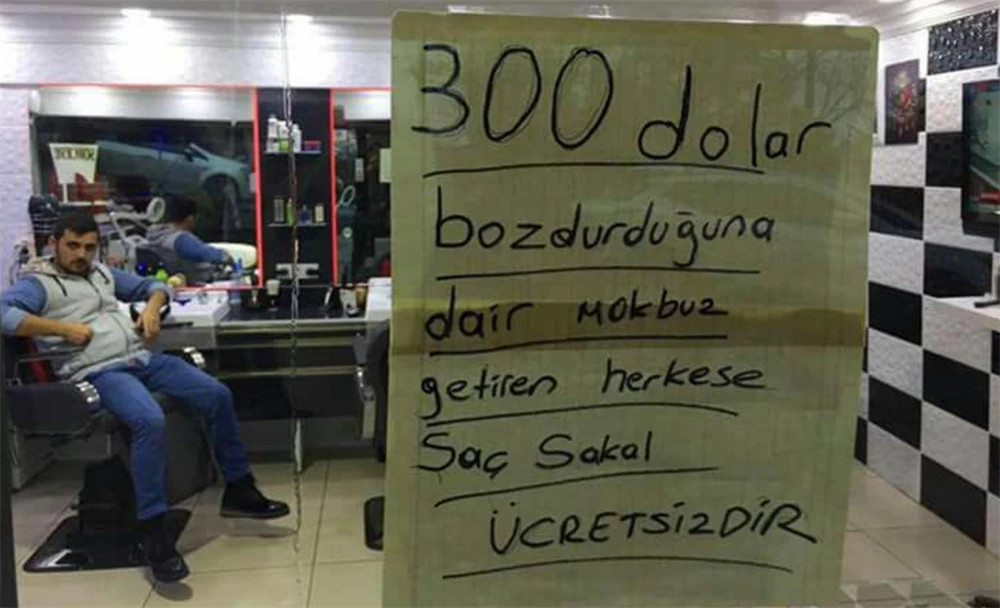 300 dolar
bozdurduğuna
dair makbuz
getiren herkese
Saç Sakal
ÜCRETSİZDİR